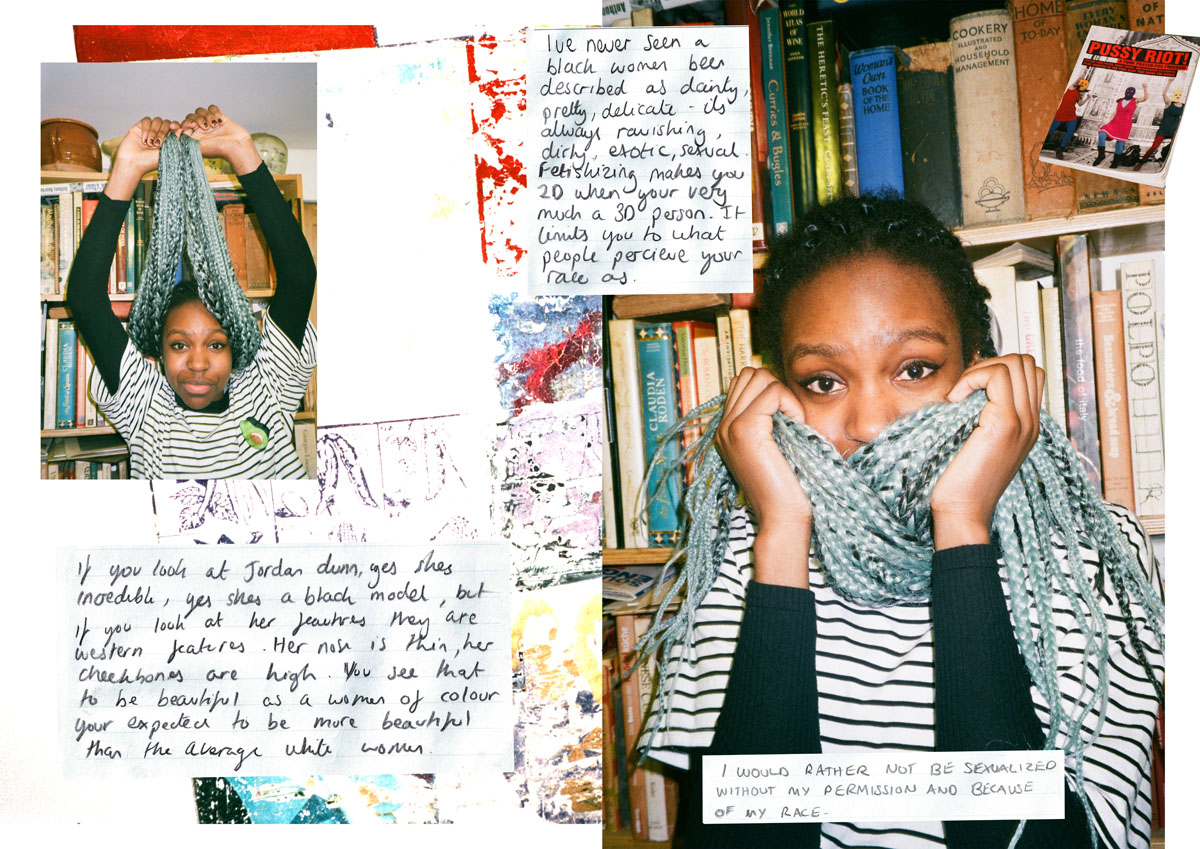 I've never seen a
black women been
described as dainty,
pretty, delicate - its
always ravishing,
dirty, exotic, sexual.
Fetishizing makes you
2D when your very
much a 3D person. It
limits you to what
people percieve your
race as.
If you look at Jordan dunn, yes shes
incredible, yes shes a black model, but
if you look at her feautres they are
western features. Her nose is thin, her
cheekbones are high. You see that
to be beautiful as a women of colour
your expected to be more beautiful
than the average white women.
I WOULD RATHER NOT BE SEXUALIZED
WITHOUT MY PERMISSION AND BECAUSE
OF MY RACE-
PUSSY RIOT!
A PUNK PRAYER FOR FREEDOM
Jennifer Brennan
Curries & Bugles
WORLD
ATLAS
OF
WINE
THE HERETIC'S FEAST
Woman's
Own
BOOK
OF THE
HOME
COOKERY
ILLUSTRATED
AND
HOUSEHOLD
MANAGEMENT
HOME
OF
TO-DAY
EVERY
OF
NAT
CLAUDIA
RODEN
the food of italy
POLPO
CLAUDIA